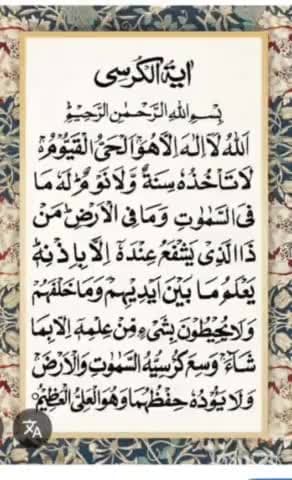 اٰیة الکرسی
بِسْمِ اللهِ الرَّحْمٰنِ الرَّحِیْمِ
اَللهُ لَاۤ اِلٰهَ اِلَّا هُوَ اَلْحَیُّ الْقَیُّوْمُ ۚ
لَا تَاْخُذُهٗ سِنَةٌ وَّلَا نَوْمٌ ؕ لَهٗ مَا
فِی السَّمٰوٰتِ وَمَا فِی الْاَرْضِ ؕ مَنْ
ذَا الَّذِیْ یَشْفَعُ عِنْدَهٗۤ اِلَّا بِاِذْنِهٖ ؕ
یَعْلَمُ مَا بَیْنَ اَیْدِیْهِمْ وَمَا خَلْفَهُمْ ۚ
وَلَا یُحِیْطُوْنَ بِشَیْءٍ مِّنْ عِلْمِهٖۤ اِلَّا بِمَا
شَآءَ ۚ وَسِعَ كُرْسِیُّهُ السَّمٰوٰتِ وَالْاَرْضَ ۚ
وَلَا یَـُٔوْدُهٗ حِفْظُهُمَا وَهُوَ الْعَلِیُّ الْعَظِیْمُ